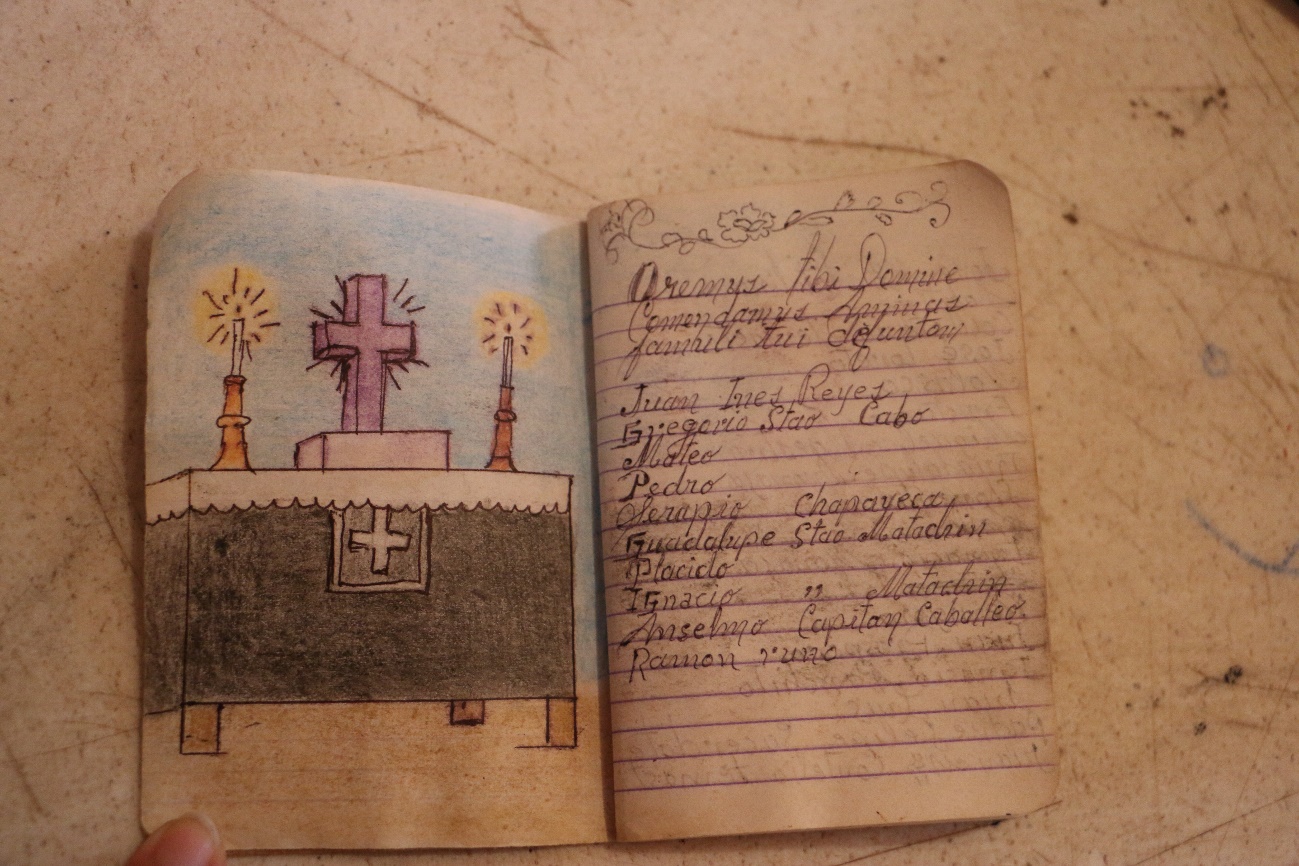 Oremys tibi Domine
Comendamus Animas
famuli tui defuntow
Juan Ines Reyes
Gregorio Stao Cabo
Mateo
Pedro
Serapio Chapayeca
Guadalupe Stao Matachin
Placido
IGnacio " Matachin
Anselmo Capitan Caballeo
Ramon runo